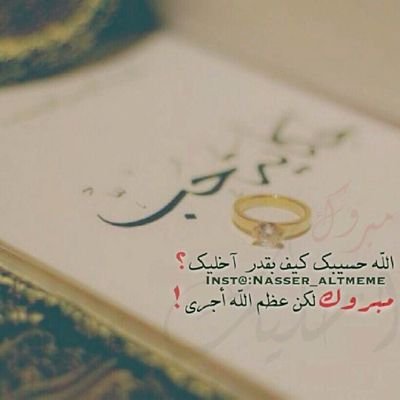 حب
مبروك
اللّه حسيبك كيف بقدر آخليك ؟
INST@:NASSER_ALTMEME
مبروك لكن عظم اللّه أجري !